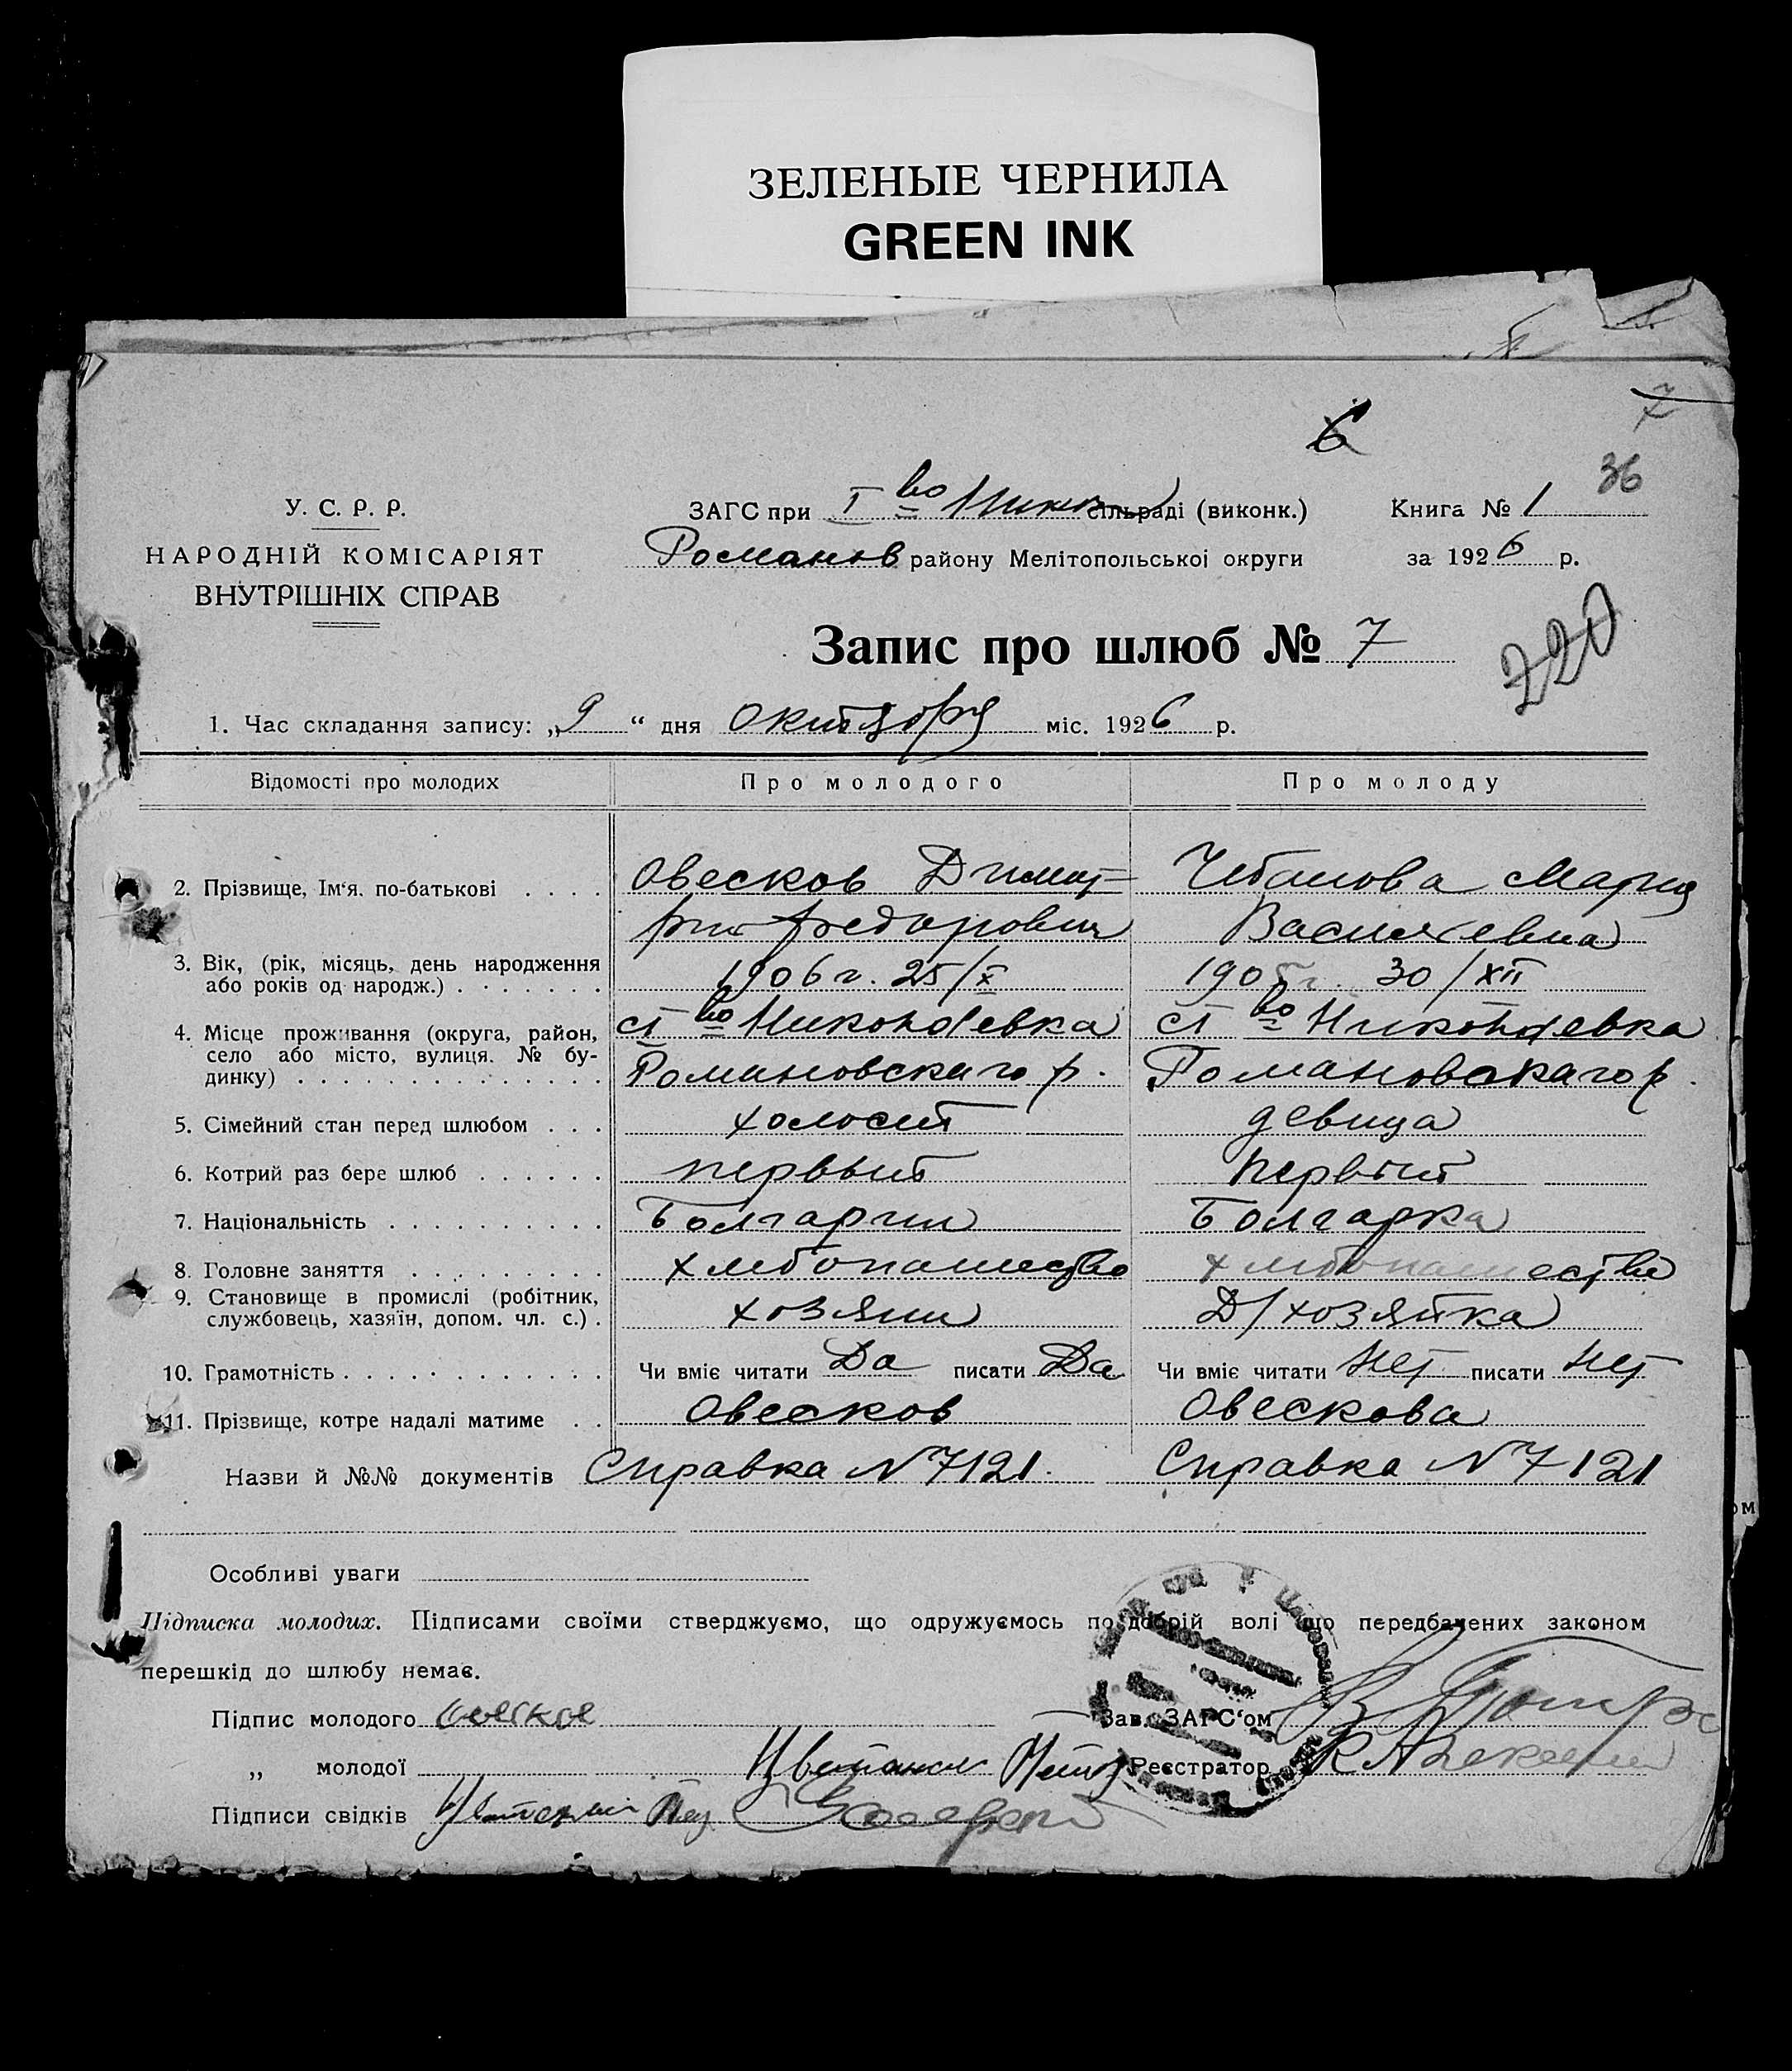 ЗЕЛЕНЫЕ ЧЕРНИЛА
GREEN INK
6
7
36
У. С. Р. Р.
НАРОДНІЙ КОМІСАРІЯТ
ВНУТРІШНІХ СПРАВ
ЗАГС при I во Нико сільраді (виконк.)
Романов району Мелітопольської округи
Книга № 1
за 1926 р.
Запис про шлюб № 7
220
1. Час складання запису: „9“ дня октября міс. 1926 р.
Відомості про молодих Про молодого Про молоду
2. Прізвище, Ім‘я. по-батькові . . . . Овесков Димит Чебанова Мария
рий Федорович Васильевна
3. Вік, (рік, місяць, день народження
або років од народж.) . . . . . . . 1906 г. 25/X 1905 г. 30/XII
4. Місце проживання (округа, район, сI во Николаевка сI во Николаевка
село або місто, вулиця. № бу-
динку) . . . . . . . . . . . . . . Романовскаго р. Романовскаго р.
5. Сімейний стан перед шлюбом . . . холост девица
6. Котрий раз бере шлюб . . . . . . первый первый
7. Національність . . . . . . . . . . Болгарин Болгарка
8. Головне заняття . . . . . . . . . хлебопашество хлебопашество
9. Становище в промислі (робітник,
службовець, хазяїн, допом. чл. с.) . хозяин Д/хозяйка
10. Грамотність . . . . . . . . . . . . Чи вміє читати Да писати Да Чи вміє читати Нет писати Нет
11. Прізвище, котре надалі матиме . . Овесков Овескова
Назви й №№ документів Справка N 7121. Справка N 7121
Особливі уваги
Підписка молодих. Підписами своїми стверджуємо, що одружуємось по добрій волі що передбачених законом
перешкід до шлюбу немає.
Підпис молодого Овесков Зав. ЗАГС‘ом
„ молодої Реєстратор
Підписи свідків